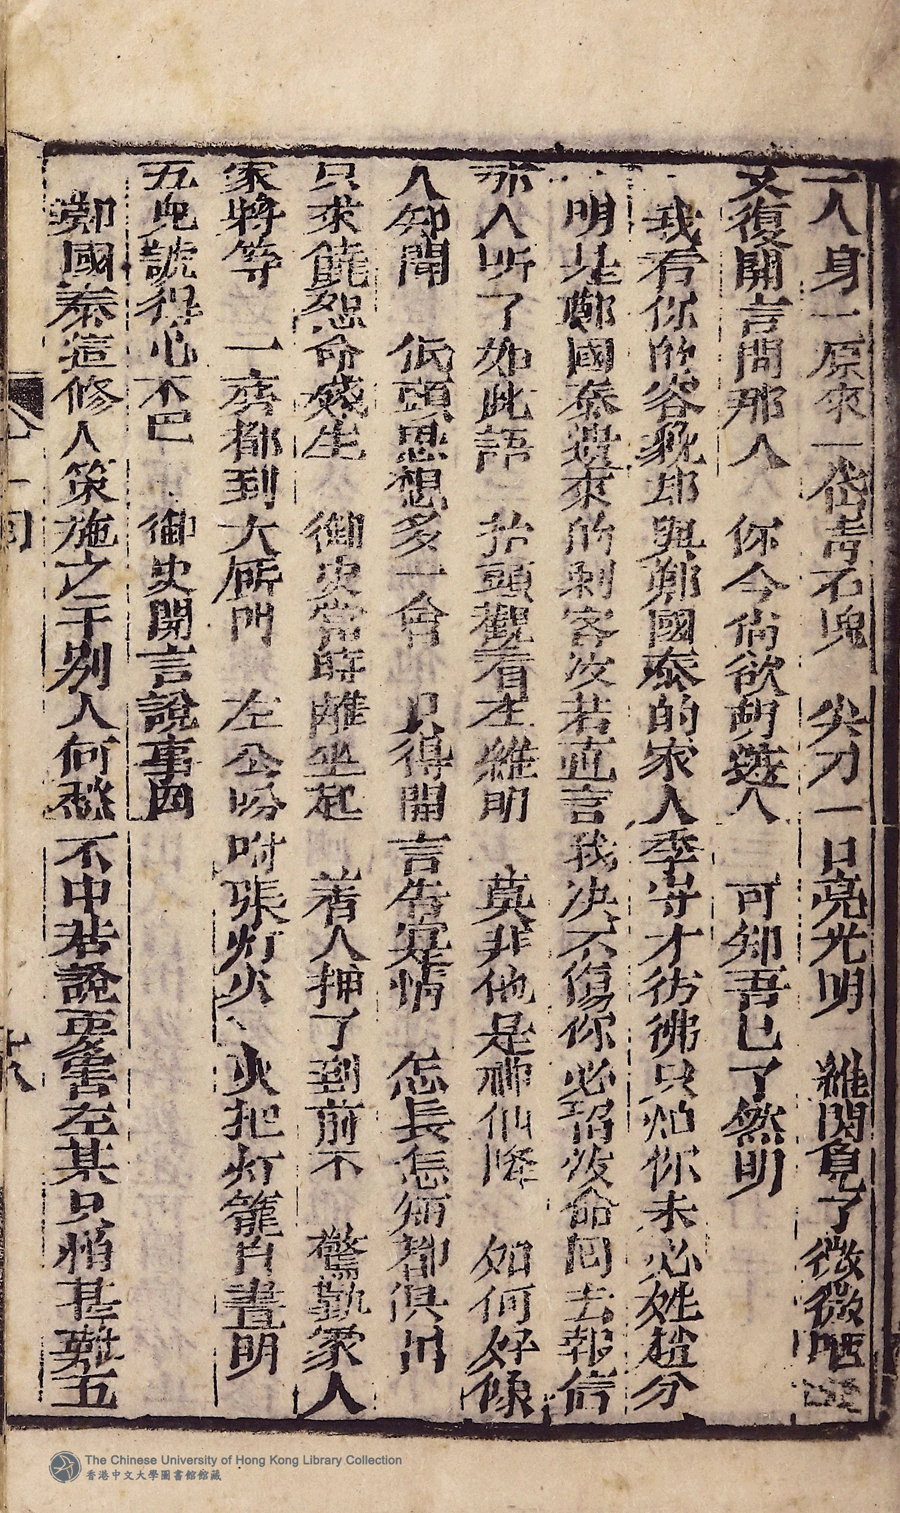 一人身一原來一袋青石塊　尖刀一口亮光明　維明見了微微哂
又復開言問那人　你今尚欲胡遮人　可知吾已了然明
我看你的容貌却與鄭國泰的家人季守才彷彿只怕你未必姓趙分
明是鄭國泰遣來的刺客汝若直言我決不傷你必招汝命回去報信
那人听了如此語　抬頭觀看左維明　莫非他是神仙降　如何好像
人知聞　低頭思想多一會　只得開言告寔情　怎長怎短都俱出
只求饒恕命殘生　御史當時離坐起　著人押了到前不　驚動家人
家將等　一齊都到大所門　左公吩咐張灯火　火把灯籠白晝明
五鬼諕得心不已　御史開言說事因
鄭國泰這修人策施之于別人何愁不中若說要害左某只怕甚難五
十一回
十八
The Chinese University of Hong Kong Library Collection
香港中文大學圖書館館藏